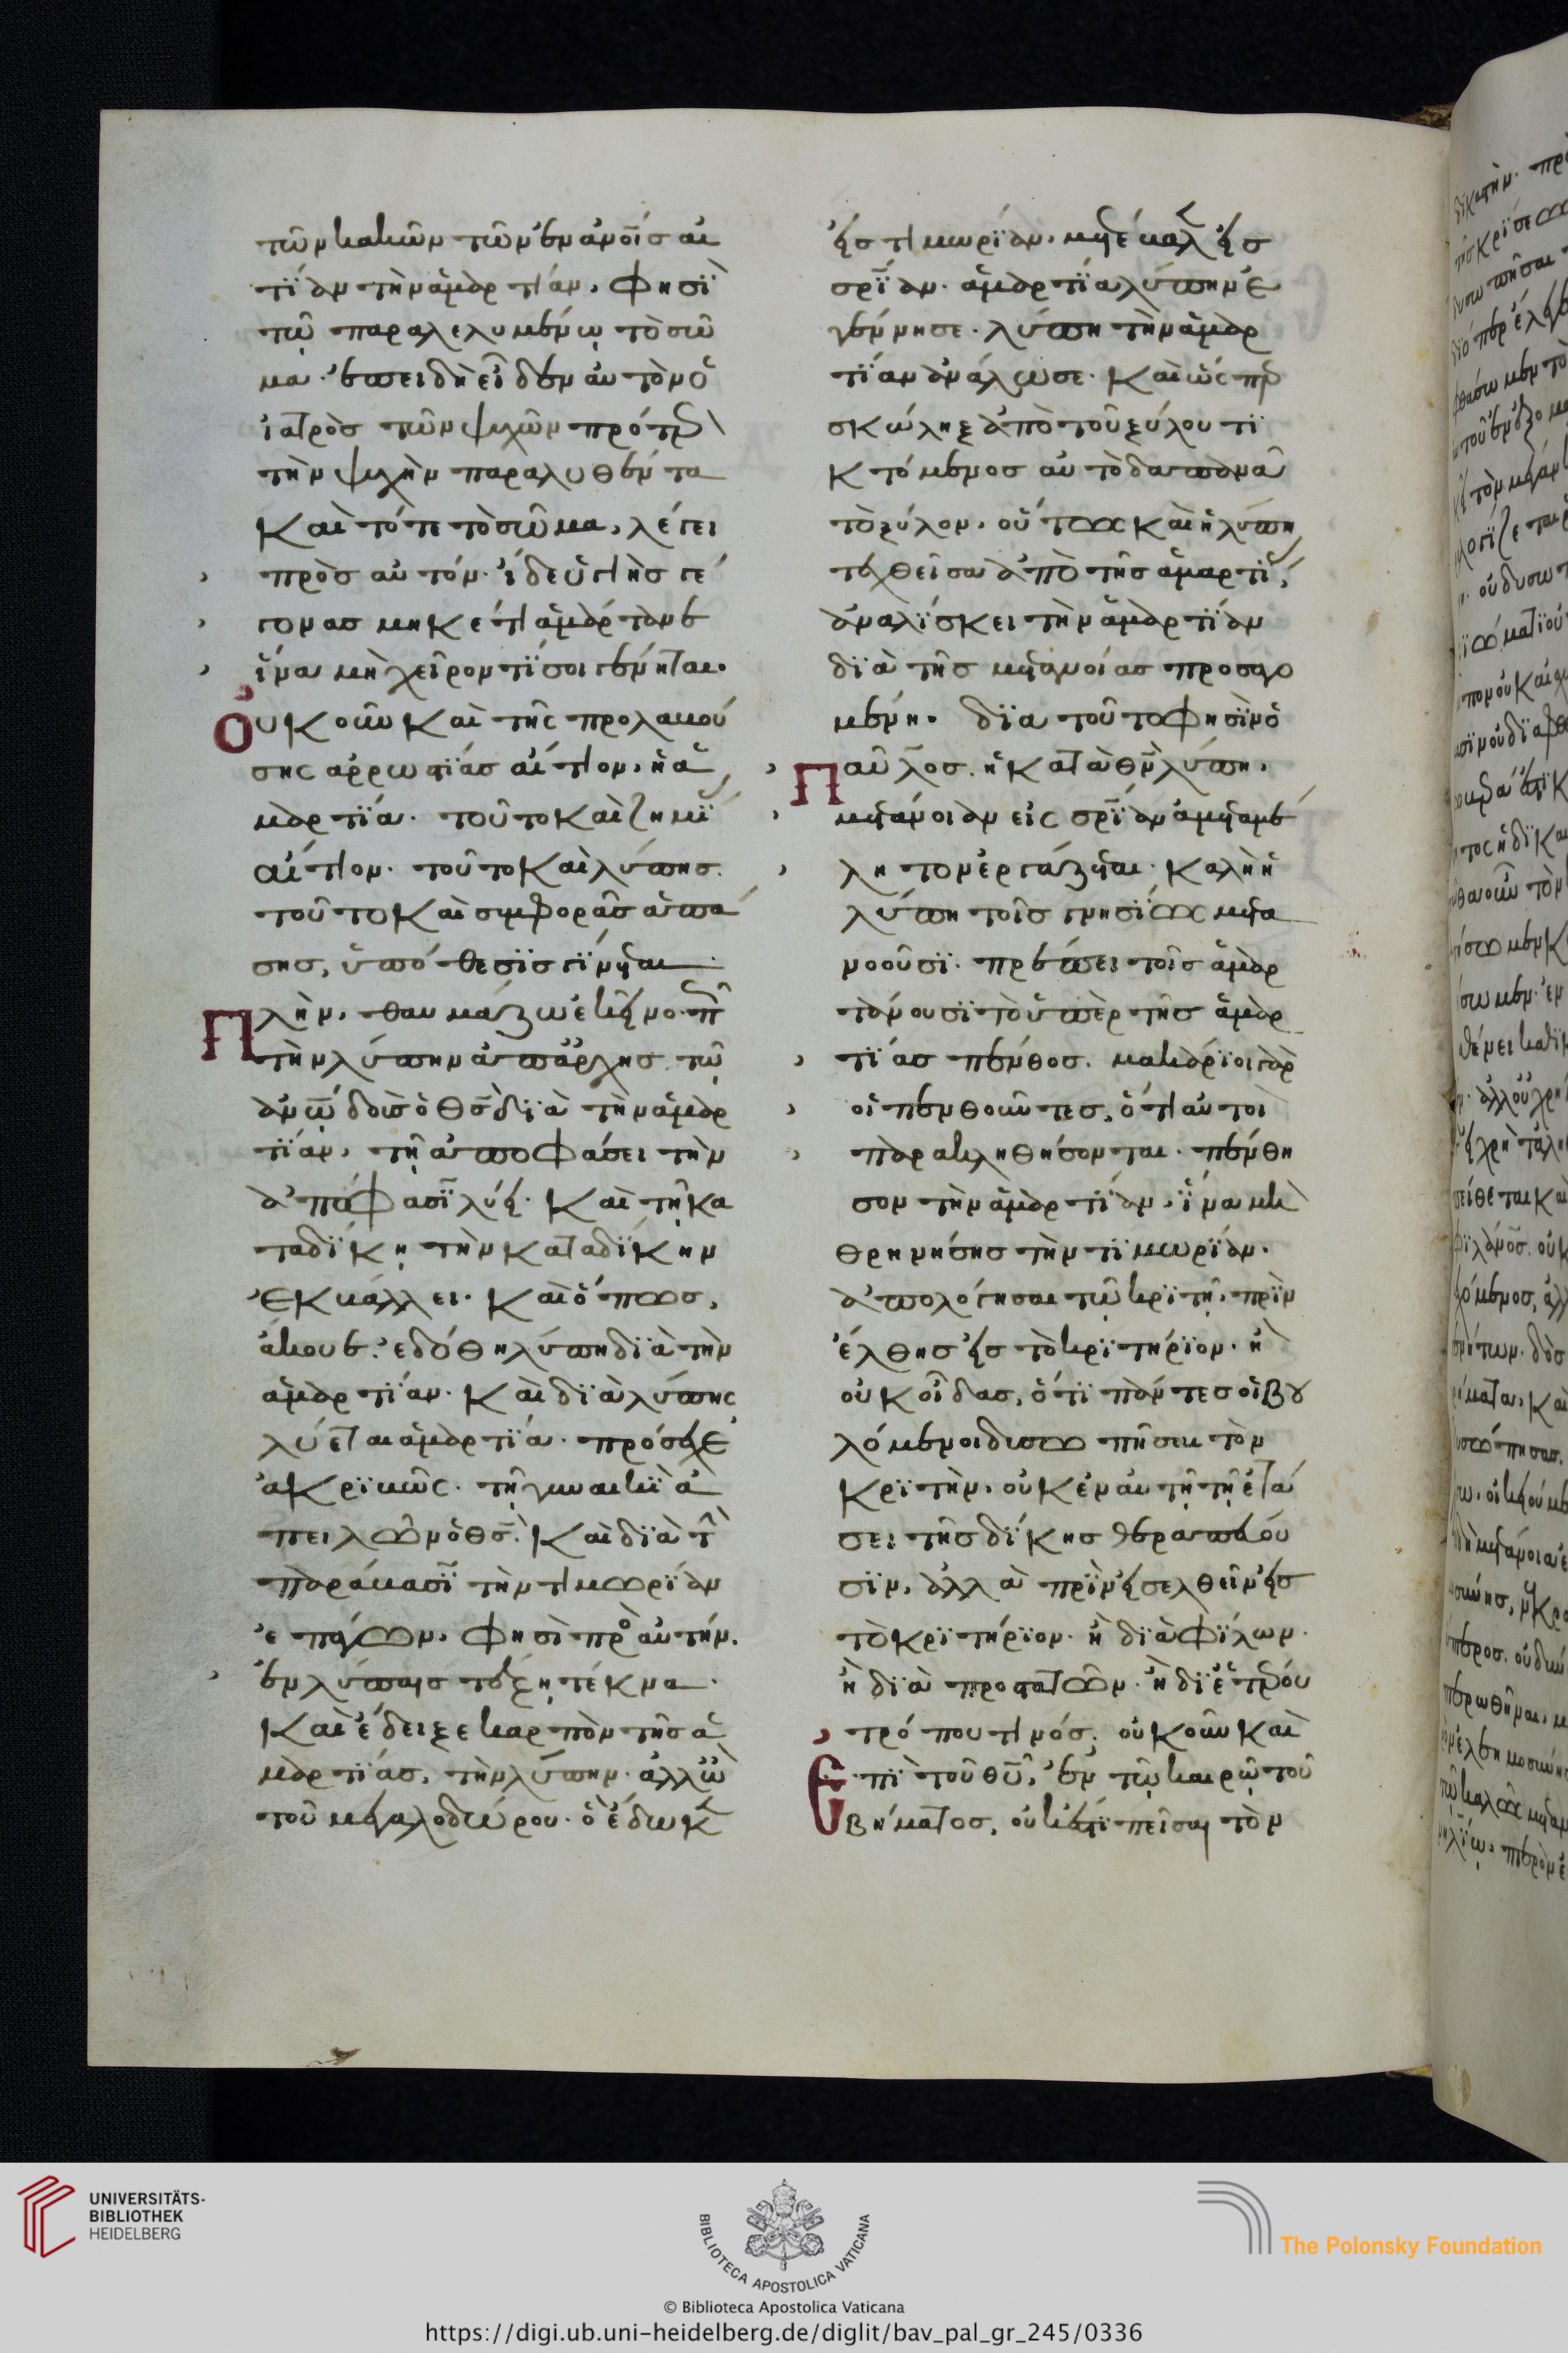 τῶν κακῶν τῶν ἐν ἀνοῖσ αἰ
τίαν τὴν ἁμαρτίαν, φησὶ
τῷ παραλελυμένῳ τὸ σῶ
μα· ἐπειδὴ εἶδεν αὐτὸν ὁ
ἰατρὸσ τῶν ψυχῶν πρότερ
τὴν ψυχὴν παραλυθέντα
καὶ τότε τὸ σῶμα, λέγει
πρὸσ αὐτόν· ἴδε ὑγιὴσ γέ
γονασ μηκέτι ἁμάρτανε
ἵνα μὴ χεῖρον τί σοι γένηται.
Οὐκοῦν καὶ τῆς προλαβού
σης ἀρρωστίασ αἴτιον, ἡ ἁ
μαρτία. τοῦτο καὶ ζημί
αἴτιον. τοῦτο καὶ λύπησ.
τοῦτο καὶ συμφορᾶσ ἁπά
σησ, ὑπόθεσισ γίνεται
Πλὴν, θαυμάζω ἐκεῖνο· ὅτι
τὴν λύπην ἀπαρχησ τῷ
ἀνῳ δοὺσ ὁ θσ διὰ τὴν ἁμαρ
τίαν, τῇ ἀποφάσει τὴν
ἀπόφασι λύει. καὶ τῇ κα
ταδίκῃ τὴν καταδίκην
ἐκβάλλει. καὶ ὅπωσ,
ἄκουε. ἐδόθη λύπη διὰ τὴν
ἁμαρτίαν. καὶ διὰ λύπης
λύεται ἁμαρτία. πρόσεχε
ἀκριβῶς. τῇ γυναικὶ ἀ
πειλῶν ὁ θσ. καὶ διὰ τ
παράβασι τὴν τιμωρίαν
ἐπάγων, φησὶ πρὸ αὐτήν.
ἐν λύπαισ τέξῃ τέκνα.
καὶ ἔδειξε καρπὸν τῆσ ἁ
μαρτίασ, τὴν λύπην. ἀλλ' ὢ
τοῦ μεγαλοδώρου. ὃ ἔδωκ
εἰσ τιμωρίαν, μετέβαλεν εἰσ
σρίαν. ἁμαρτία λύπην ἐ
γέννησε. λύπη τὴν ἁμαρ
τίαν ἀνάλωσε. καὶ ὡς περ
σκώληξ ἀπὸ τοῦ ξύλου τι
κτόμενοσ αὐτὸ δαπανᾶ
τὸ ξύλον, οὕτως καὶ ἡ λύπη
τεχθεῖσα ἀπὸ τῆσ ἁμαρτί,
ἀναλίσκει τὴν ἁμαρτίαν
διὰ τῆσ μετανοίασ προσαγο
μένη. διὰ τοῦτο φησὶν ὁ
Παῦλοσ. ἡ κατὰ θν λύπη,
μετάνοιαν εἰς σρίαν ἀμεταμέ
λητον ἐργάζεται. καλὴ ἡ
λύπη τοῖσ γνησίως μετα
νοοῦσι. πρέπει τοῖσ ἁμαρ
τάνουσι τὸ ὑπὲρ τῆσ ἁμαρ
τίασ πένθοσ. μακάριοι γὰρ
οἱ πενθοῦντεσ, ὅτι αὐτοὶ
παρακληθήσονται. πένθη
σον τὴν ἁμαρτίαν, ἵνα μὴ
θρηνήσησ τὴν τιμωρίαν.
ἀπολόγησαι τῷ κριτῇ, πρὶν
ἔλθησ εἰσ τὸ κριτήριον. ἢ
οὐκ οἶδασ, ὅτι πάντεσ οἱ βου
λόμενοι δυσωπῆσαι τὸν
κριτὴν, οὐκ ἐν αὐτῇ τῇ ἐξετά
σει τῆσ δίκησ θεραπεύου
σιν, ἀλλὰ πρὶν εἰσελθεῖν εἰσ
τὸ κριτήριον. ἢ διὰ φίλων.
ἢ διὰ προστατῶν. ἢ δι' ἑτέρου
τρόπου τινόσ. οὐκοῦν καὶ
Ἐπὶ τοῦ θυ, ἐν τῷ καιρῷ τοῦ
βήματοσ, οὐκ ἔστι πεῖσαι τὸν
UNIVERSITÄTS-
BIBLIOTHEK
HEIDELBERG
BIBLIOTECA APOSTOLICA VATICANA
The Polonsky Foundation
© Biblioteca Apostolica Vaticana
https://digi.ub.uni-heidelberg.de/diglit/bav_pal_gr_245/0336